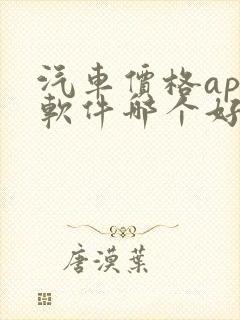 汽車價格ap
軟件哪个好
唐漠葉